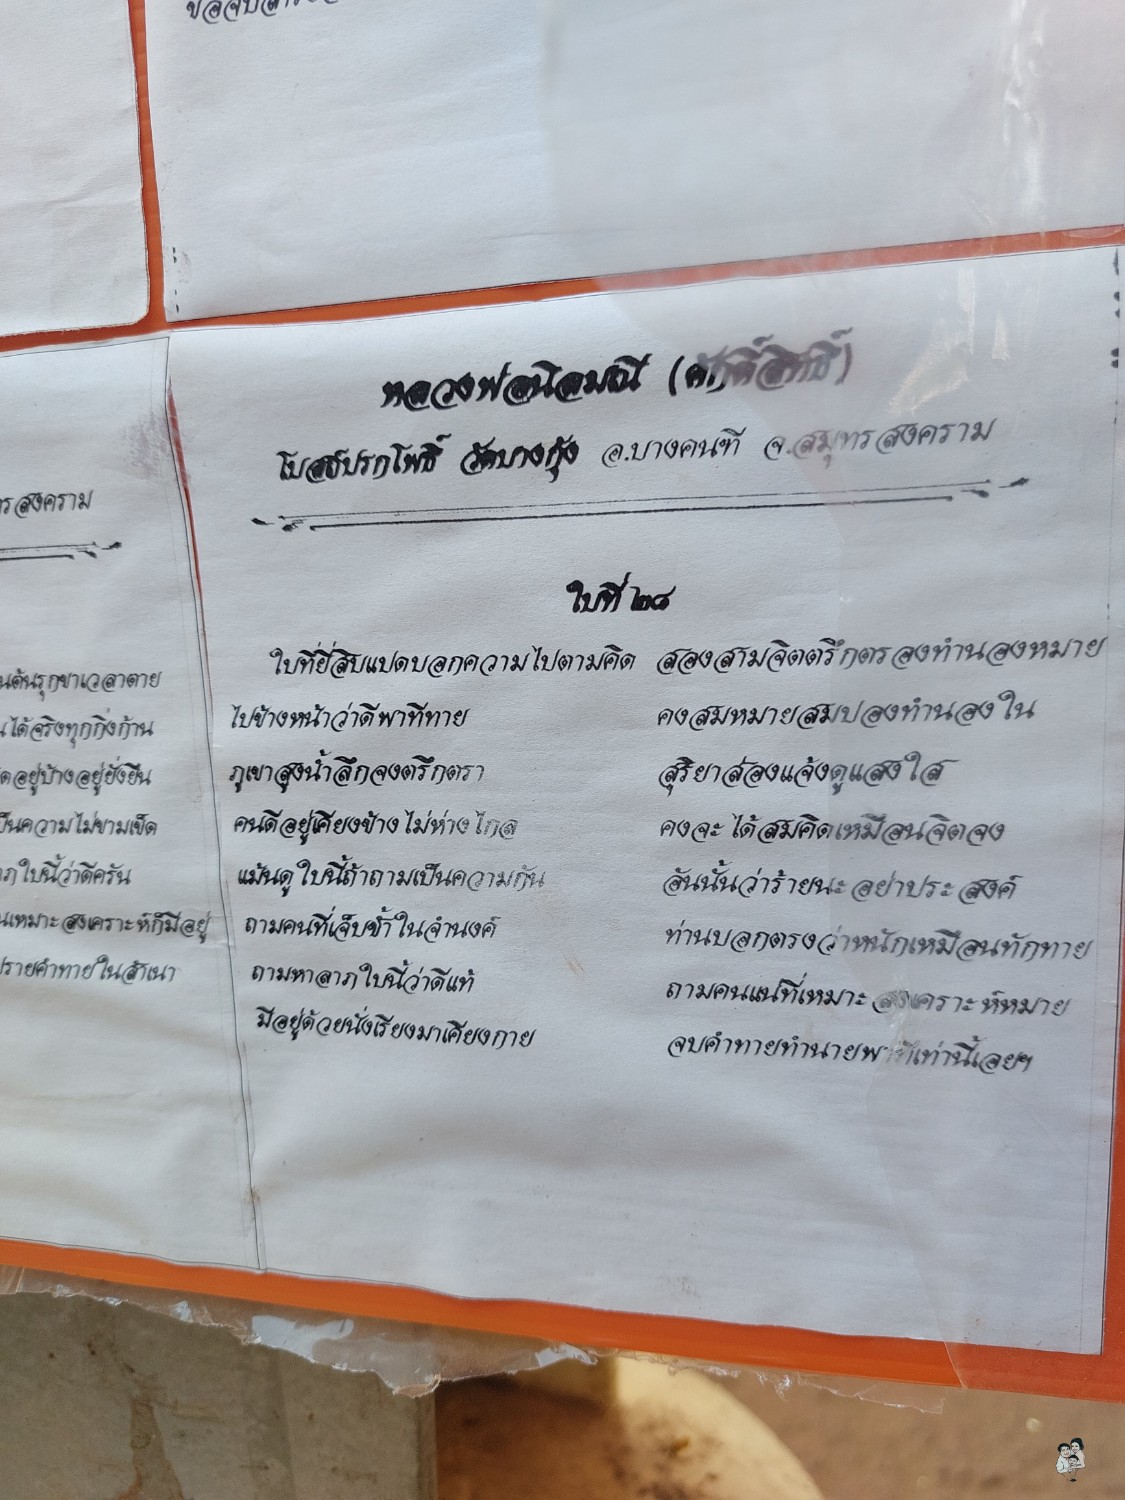 รสงคราม
นต้นรุกขาเวลาตาย
นได้จริงทุกกิ่งก้าน
อยู่บ้างอยู่ยั่งยืน
ป็นความไม่ขามเข็ด
าภใบนี้ว่าดีครัน
นเหมาะสงเคราะห์ก็มีอยู่
ปรายคำทายในสำเนา
หลวงพ่อนิลมณี (ศักดิ์สิทธิ์)
โบสถ์ปรกโพธิ์ วัดบางกุ้ง อ.บางคนฑี จ.สมุทรสงคราม
ใบที่ ๒๘
ใบที่ยี่สิบแปดบอกความไปตามคิด สองสามจิตตรึกตรองทำนองหมาย
ไปข้างหน้าว่าดีพาทีทาย คงสมหมายสมปองทำนองใน
ภูเขาสูงน้ำลึกจงตรึกตรา สุริยาส่องแจ้งดูแสงใส
คนดีอยู่เคียงข้างไม่ห่างไกล คงจะได้สมคิดเหมือนจิตจง
แม้นดูใบนี้ถ้าถามเป็นความกัน อันนั้นว่าร้ายนะอย่าประสงค์
ถามคนที่เจ็บช้ำในจำนงค์ ท่านบอกตรงว่าหนักเหมือนทักทาย
ถามหาลาภใบนี้ว่าดีแท้ ถามคนแน่ที่เหมาะสงเคราะห์หมาย
มีอยู่ด้วยนั่งเรียงมาเคียงกาย จบคำทายทำนายพาทีเท่านี้เอยฯ